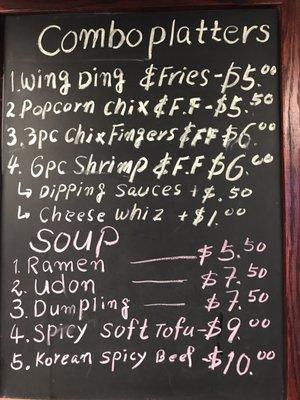 Combo platters
1. Wing Ding & Fries - $5.00
2 Popcorn chix & F.F - $5.50
3. 3pc chix Fingers & FF $6.00
4. 6pc Shrimp & F.F $6.00
↳ Dipping Sauces + $.50
↳ Cheese Whiz + $1.00
Soup
1. Ramen — $5.50
2. Udon — $7.50
3. Dumpling — $7.50
4. Spicy Soft Tofu - $9.00
5. Korean Spicy Beef - $10.00